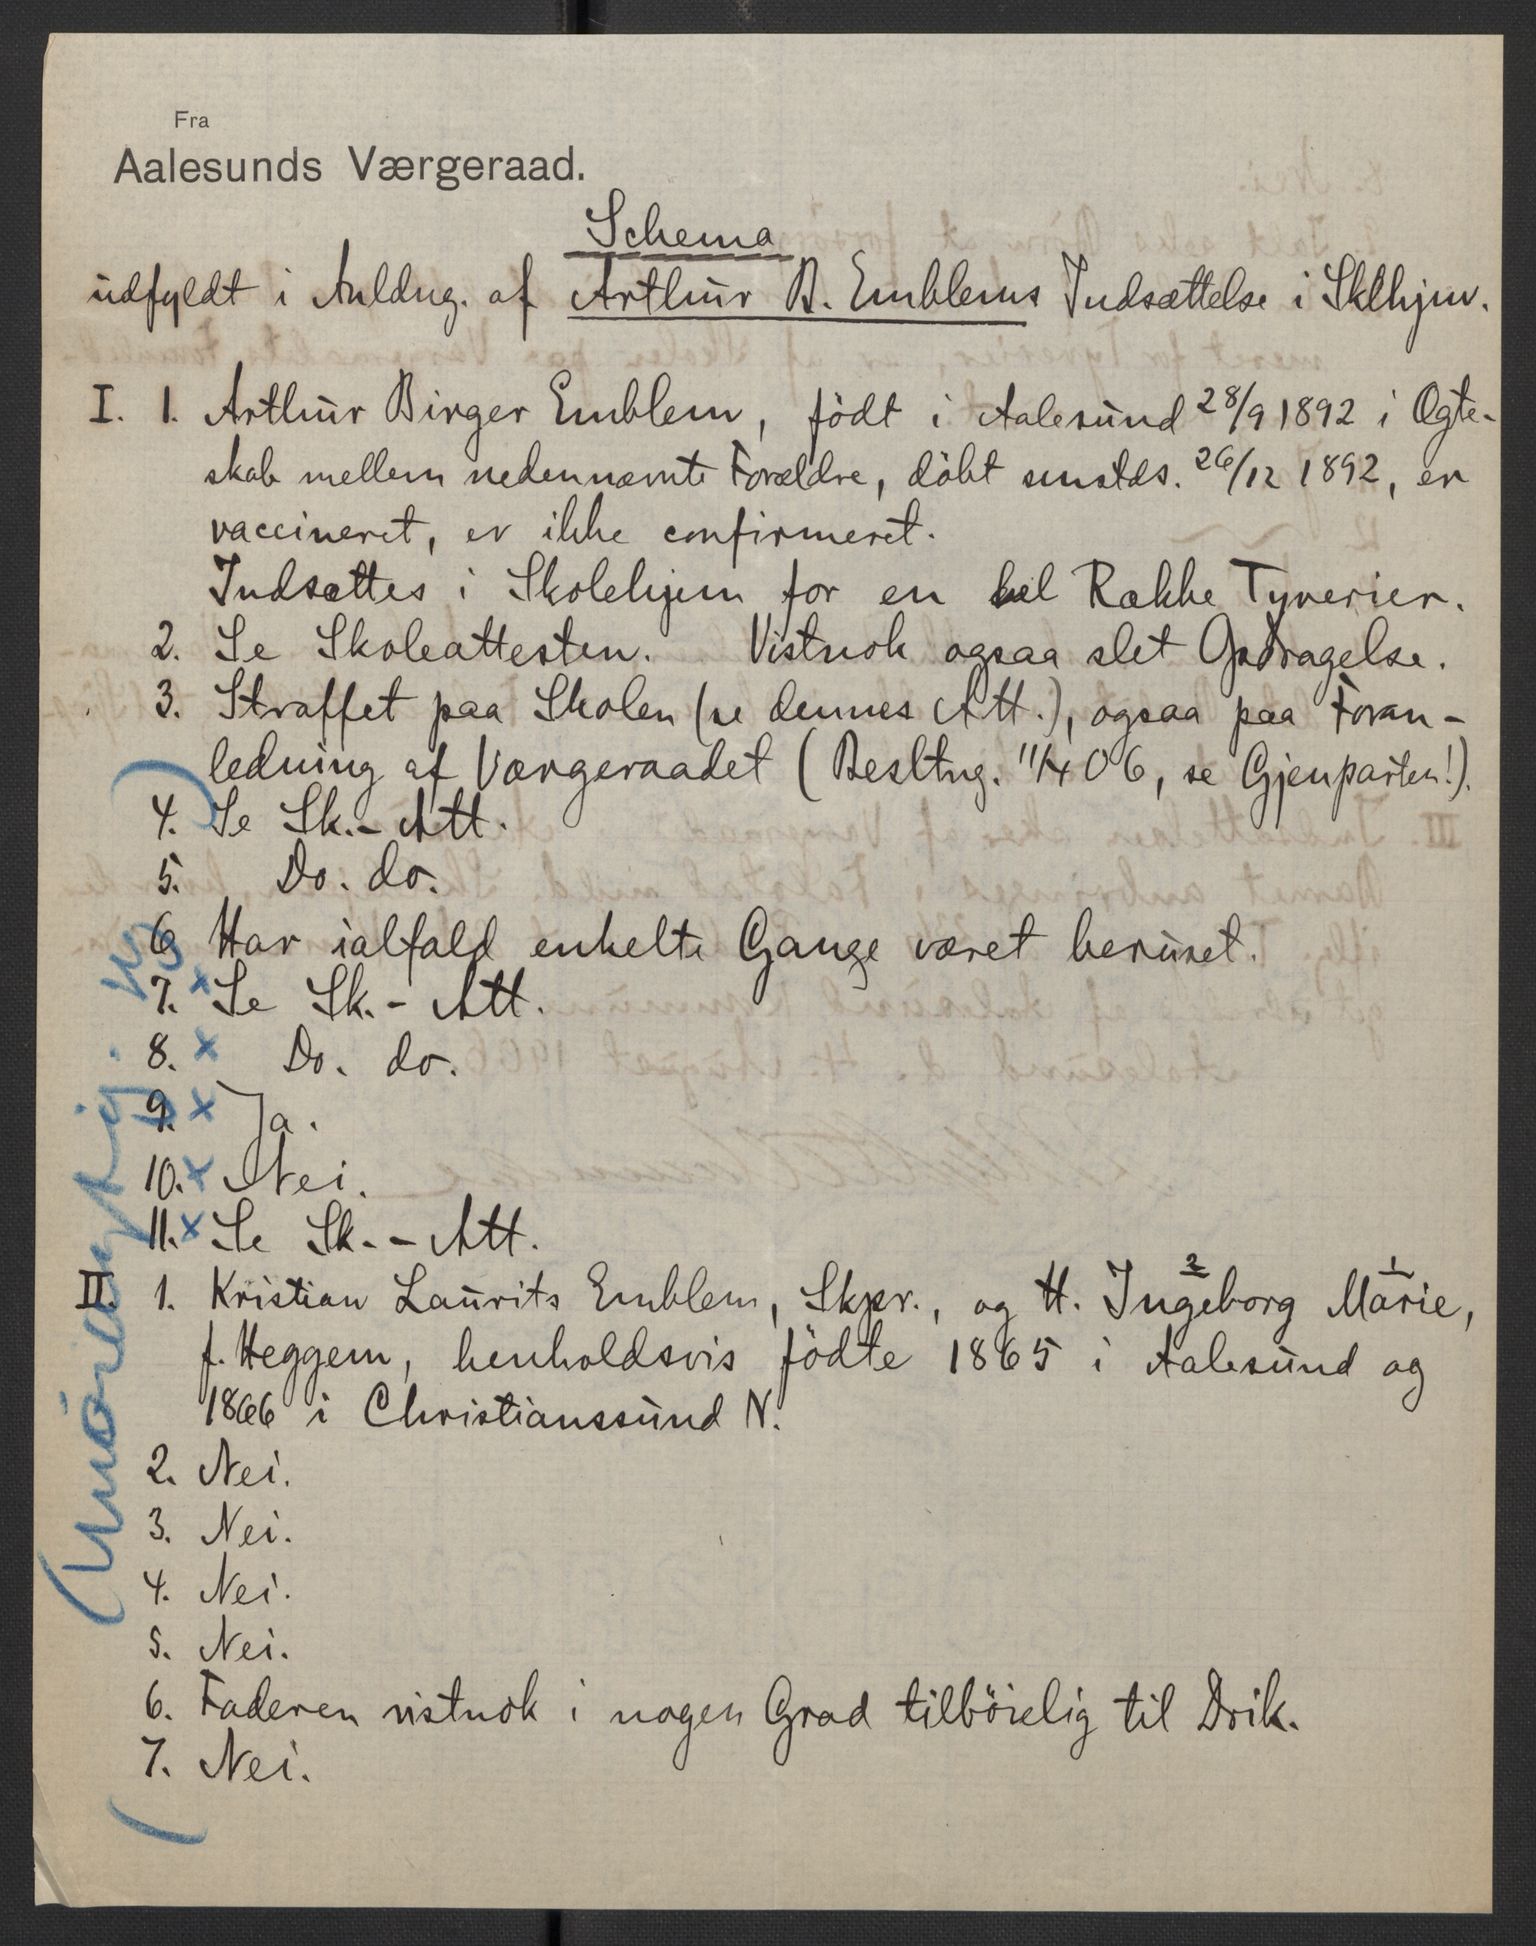 Fra
Aalesunds Værgeraad.
Schema
udfyldt i Anldng. af Arthur B. Emblems Indsættelse i Sklhjm.
I. 1. Arthur Birger Emblem, født i Aalesund 28/9 1892 i Ægte-
skab mellem nedennævnte Forældre, döbt smstds. 26/12 1892, er
vaccineret, er ikke confirmeret.
Indsættes i Skolehjem for en hel Række Tyverier.
2. Se Skoleattesten. Vistnok ogsaa slet Opdragelse.
3. Straffet paa Skolen (se dennes Att.), ogsaa paa Foran-
ledning af Værgeraadet (Besltng. 11/4 06, se Gjenparten!).
4. Se Sk.-Att.
5. Do. do.
6. Har ialfald enkelte Gange været beruset.
7. x Se Sk.- Att.
8. x Do. do.
9. x Ja.
10. x Nei.
11. x Se Sk.-Att.
II. 1. Kristian Laurits Emblem, Skpr., og H. Ingeborg 2 Marie 1,
f. Heggem, henholdsvis födte 1865 i Aalesund og
1866 i Christianssund N.
2. Nei.
3. Nei.
4. Nei.
5. Nei.
6. Faderen vistnok i nogen Grad tilböielig til Drik.
7. Nei.